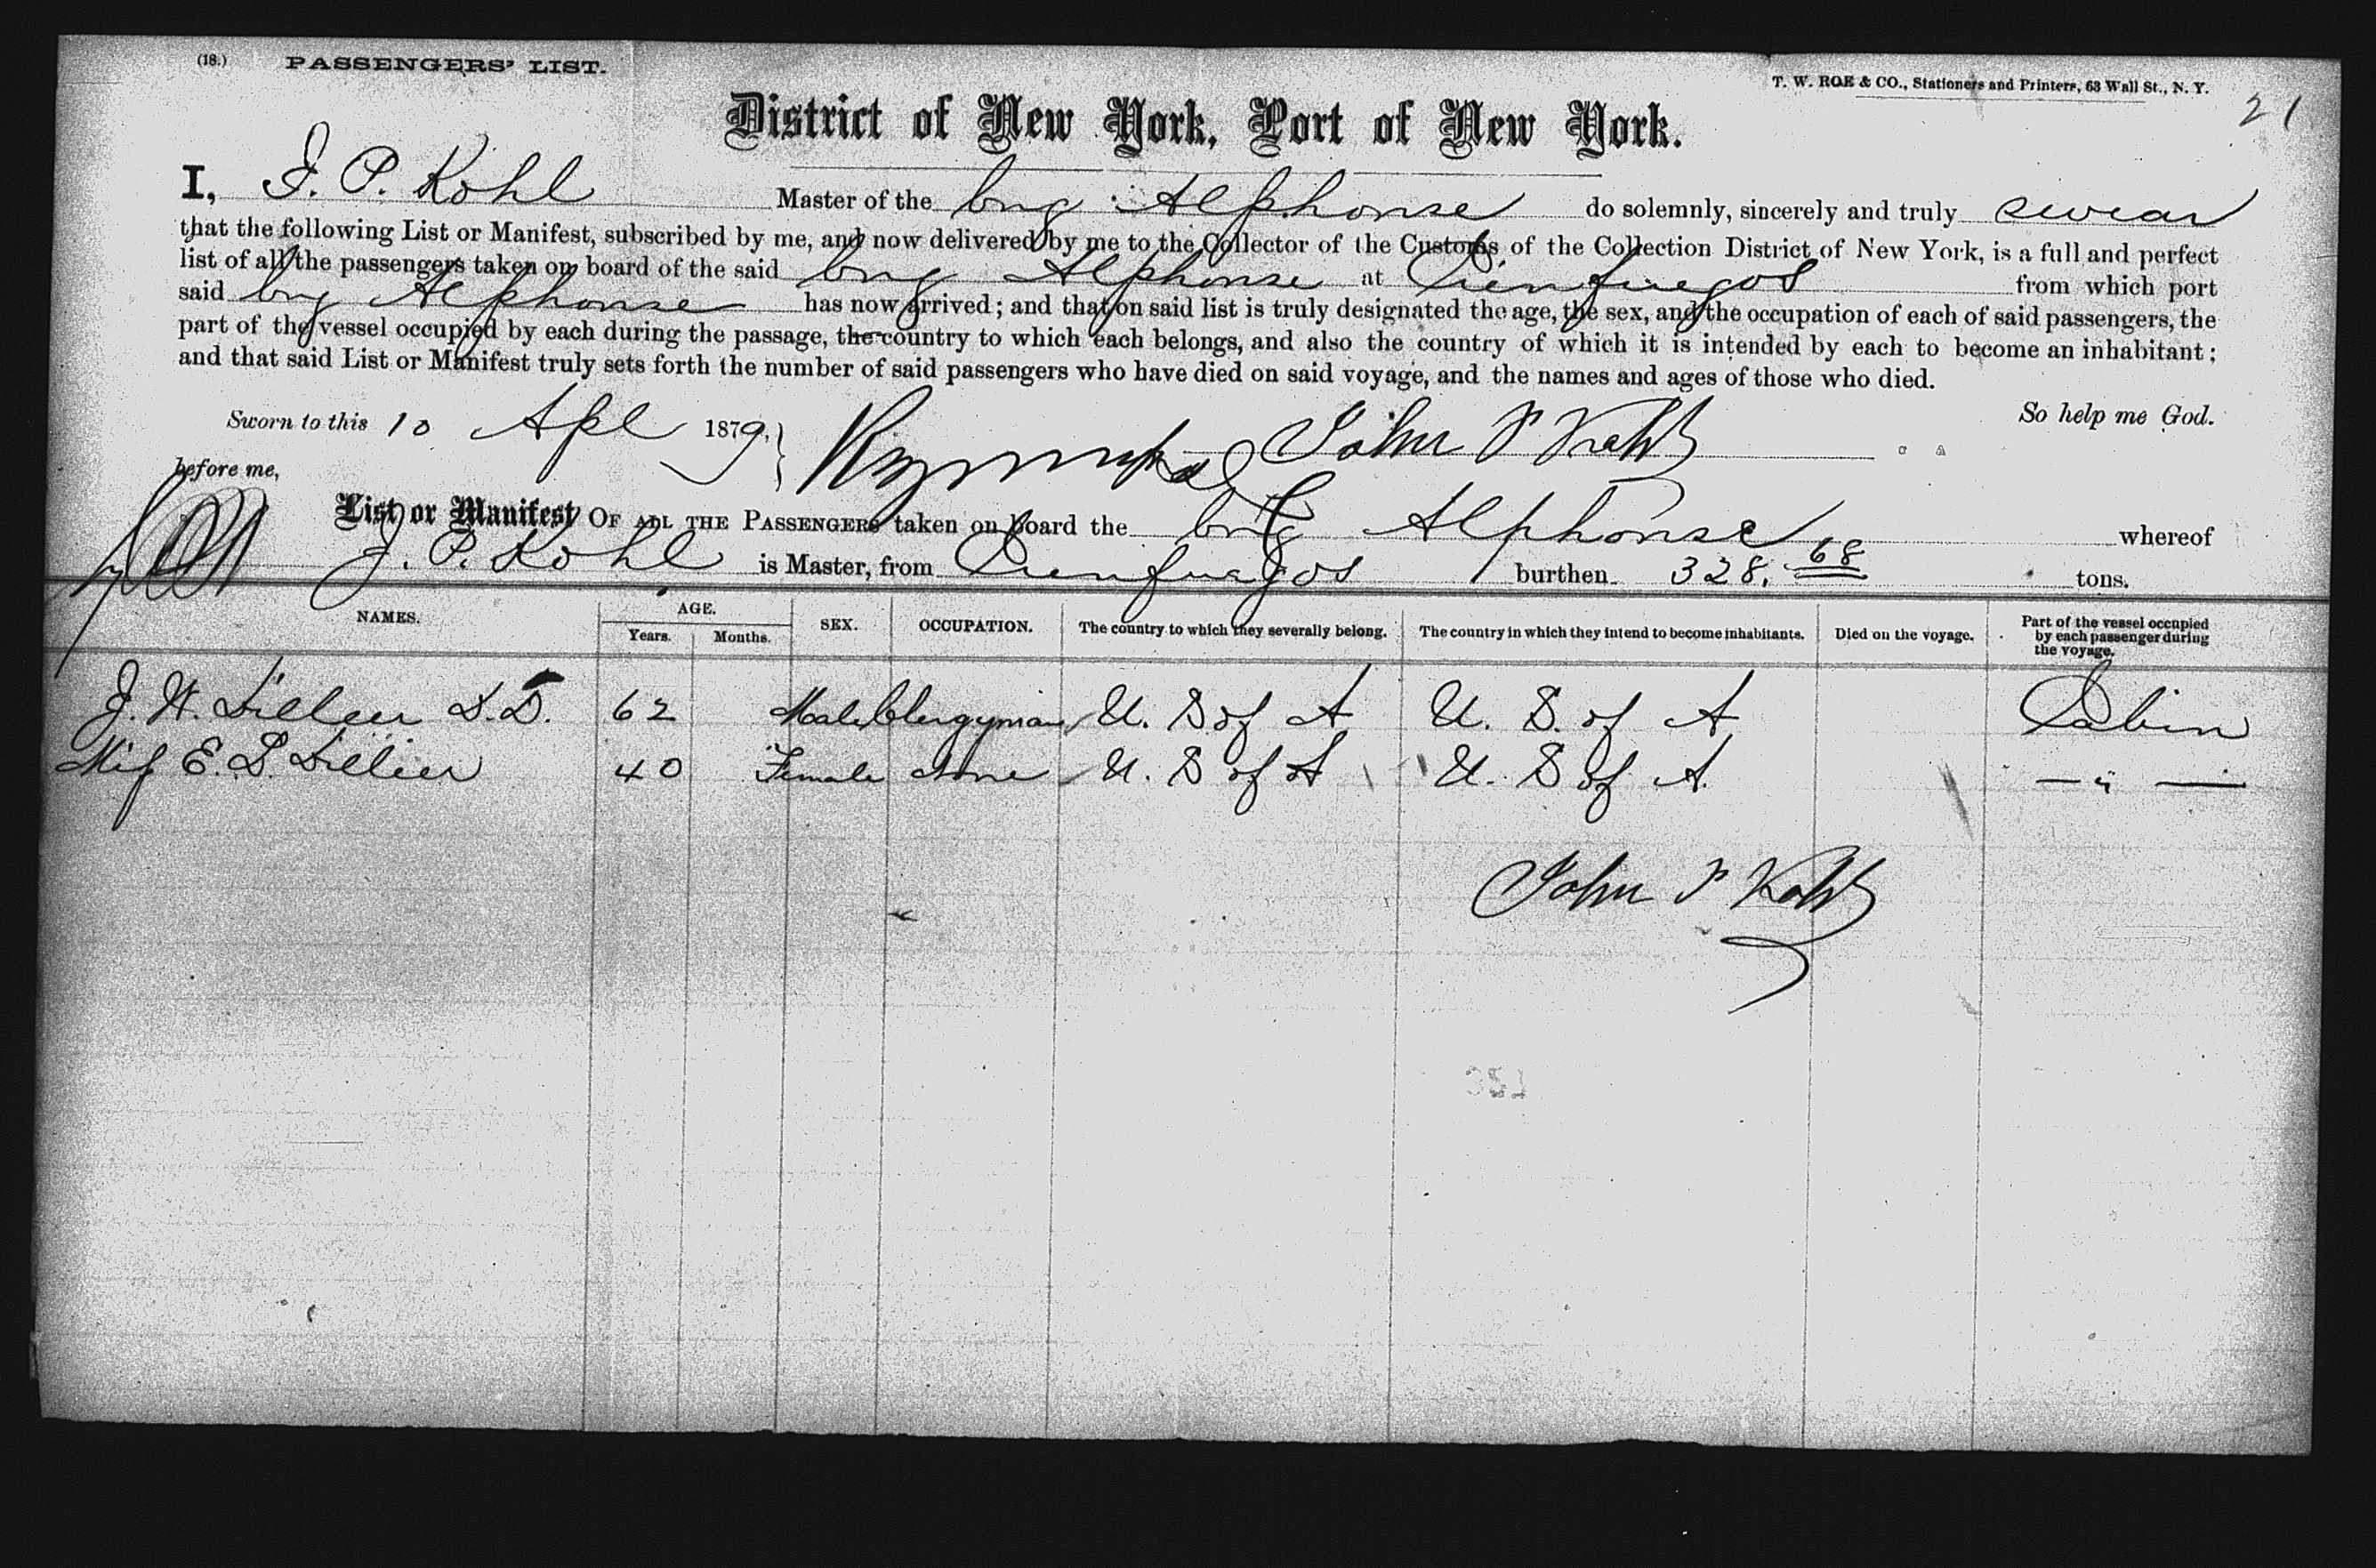 (18.) PASSENGERS' LIST.
T. W. ROE & CO., Stationers and Printers, 63 Wall St., N. Y.
21
District of New York, Port of New York.
I, J. P. Kohl Master of the brig Alphonse do solemnly, sincerely and truly swear
that the following List or Manifest, subscribed by me, and now delivered by me to the Collector of the Customs of the Collection District of New York, is a full and perfect
list of all the passengers taken on board of the said brig Alphonse at Cienfuegos from which port
said brig Alphonse has now arrived; and that on said list is truly designated the age, the sex, and the occupation of each of said passengers, the
part of the vessel occupied by each during the passage, the country to which each belongs, and also the country of which it is intended by each to become an inhabitant;
and that said List or Manifest truly sets forth the number of said passengers who have died on said voyage, and the names and ages of those who died.
So help me God.
Sworn to this 10 Apl 1879, John P Kohl
before me,
List or Manifest OF ALL THE PASSENGERS taken on board the brig Alphonse whereof
J. P. Kohl is Master, from Cienfuegos burthen 328. 68 tons.
NAMES. AGE. Years. Months. SEX. OCCUPATION. The country to which they severally belong. The country in which they intend to become inhabitants. Died on the voyage. Part of the vessel occupied by each passenger during the voyage.
J. W. D.D. 62 Male Clergyman U. S of A U. S. of A Cabin
Miss E. 40 Female None U. S of A U. S of A. — " —
John P Kohl